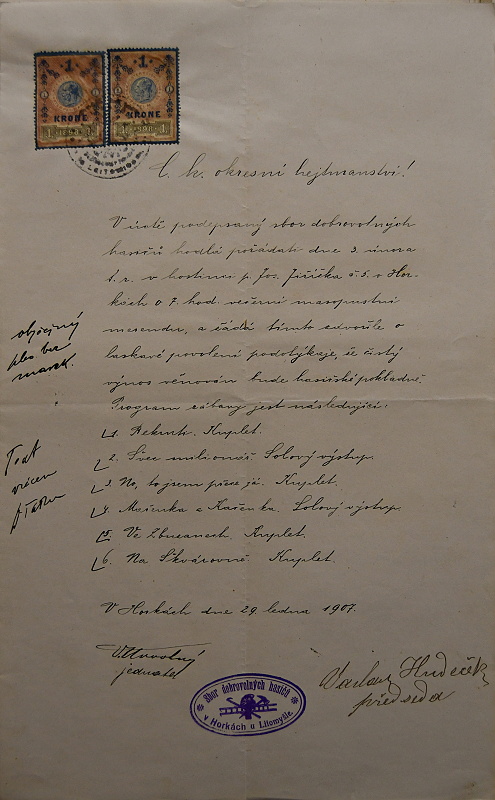 1 1
KRONE KRONE
1898 1898
C. k. okresní hejtmanství!
V úctě podepsaný sbor dobrovolných
hasičů hodlá pořádati dne 3. února
t. r. v hostinci p. Jos. Jiříčka č. 5. v Hor-
kách o 7. hod. večerní masopustní
merendu, a žádá tímto zdvořile o
laskavé povolení podotýkaje, že čistý
výnos věnován bude hasičské pokladně.
Program zábavy jest následující:
1. Rekrut. Kuplet.
2. Švec milionář. Solový výstup.
3. No, to jsem přece já. Kuplet.
4. Mařenka a Kačenka. Solový výstup.
5. Ve Zbuzanech. Kuplet.
6. Na Škvárovně. Kuplet.
V Horkách dne 29. ledna 1907.
obyčejný
ples bez
Text
vrácen
jednatel
Václav Hudeček
předseda
Sbor dobrovolných hasičů
v Horkách u Litomyšle.